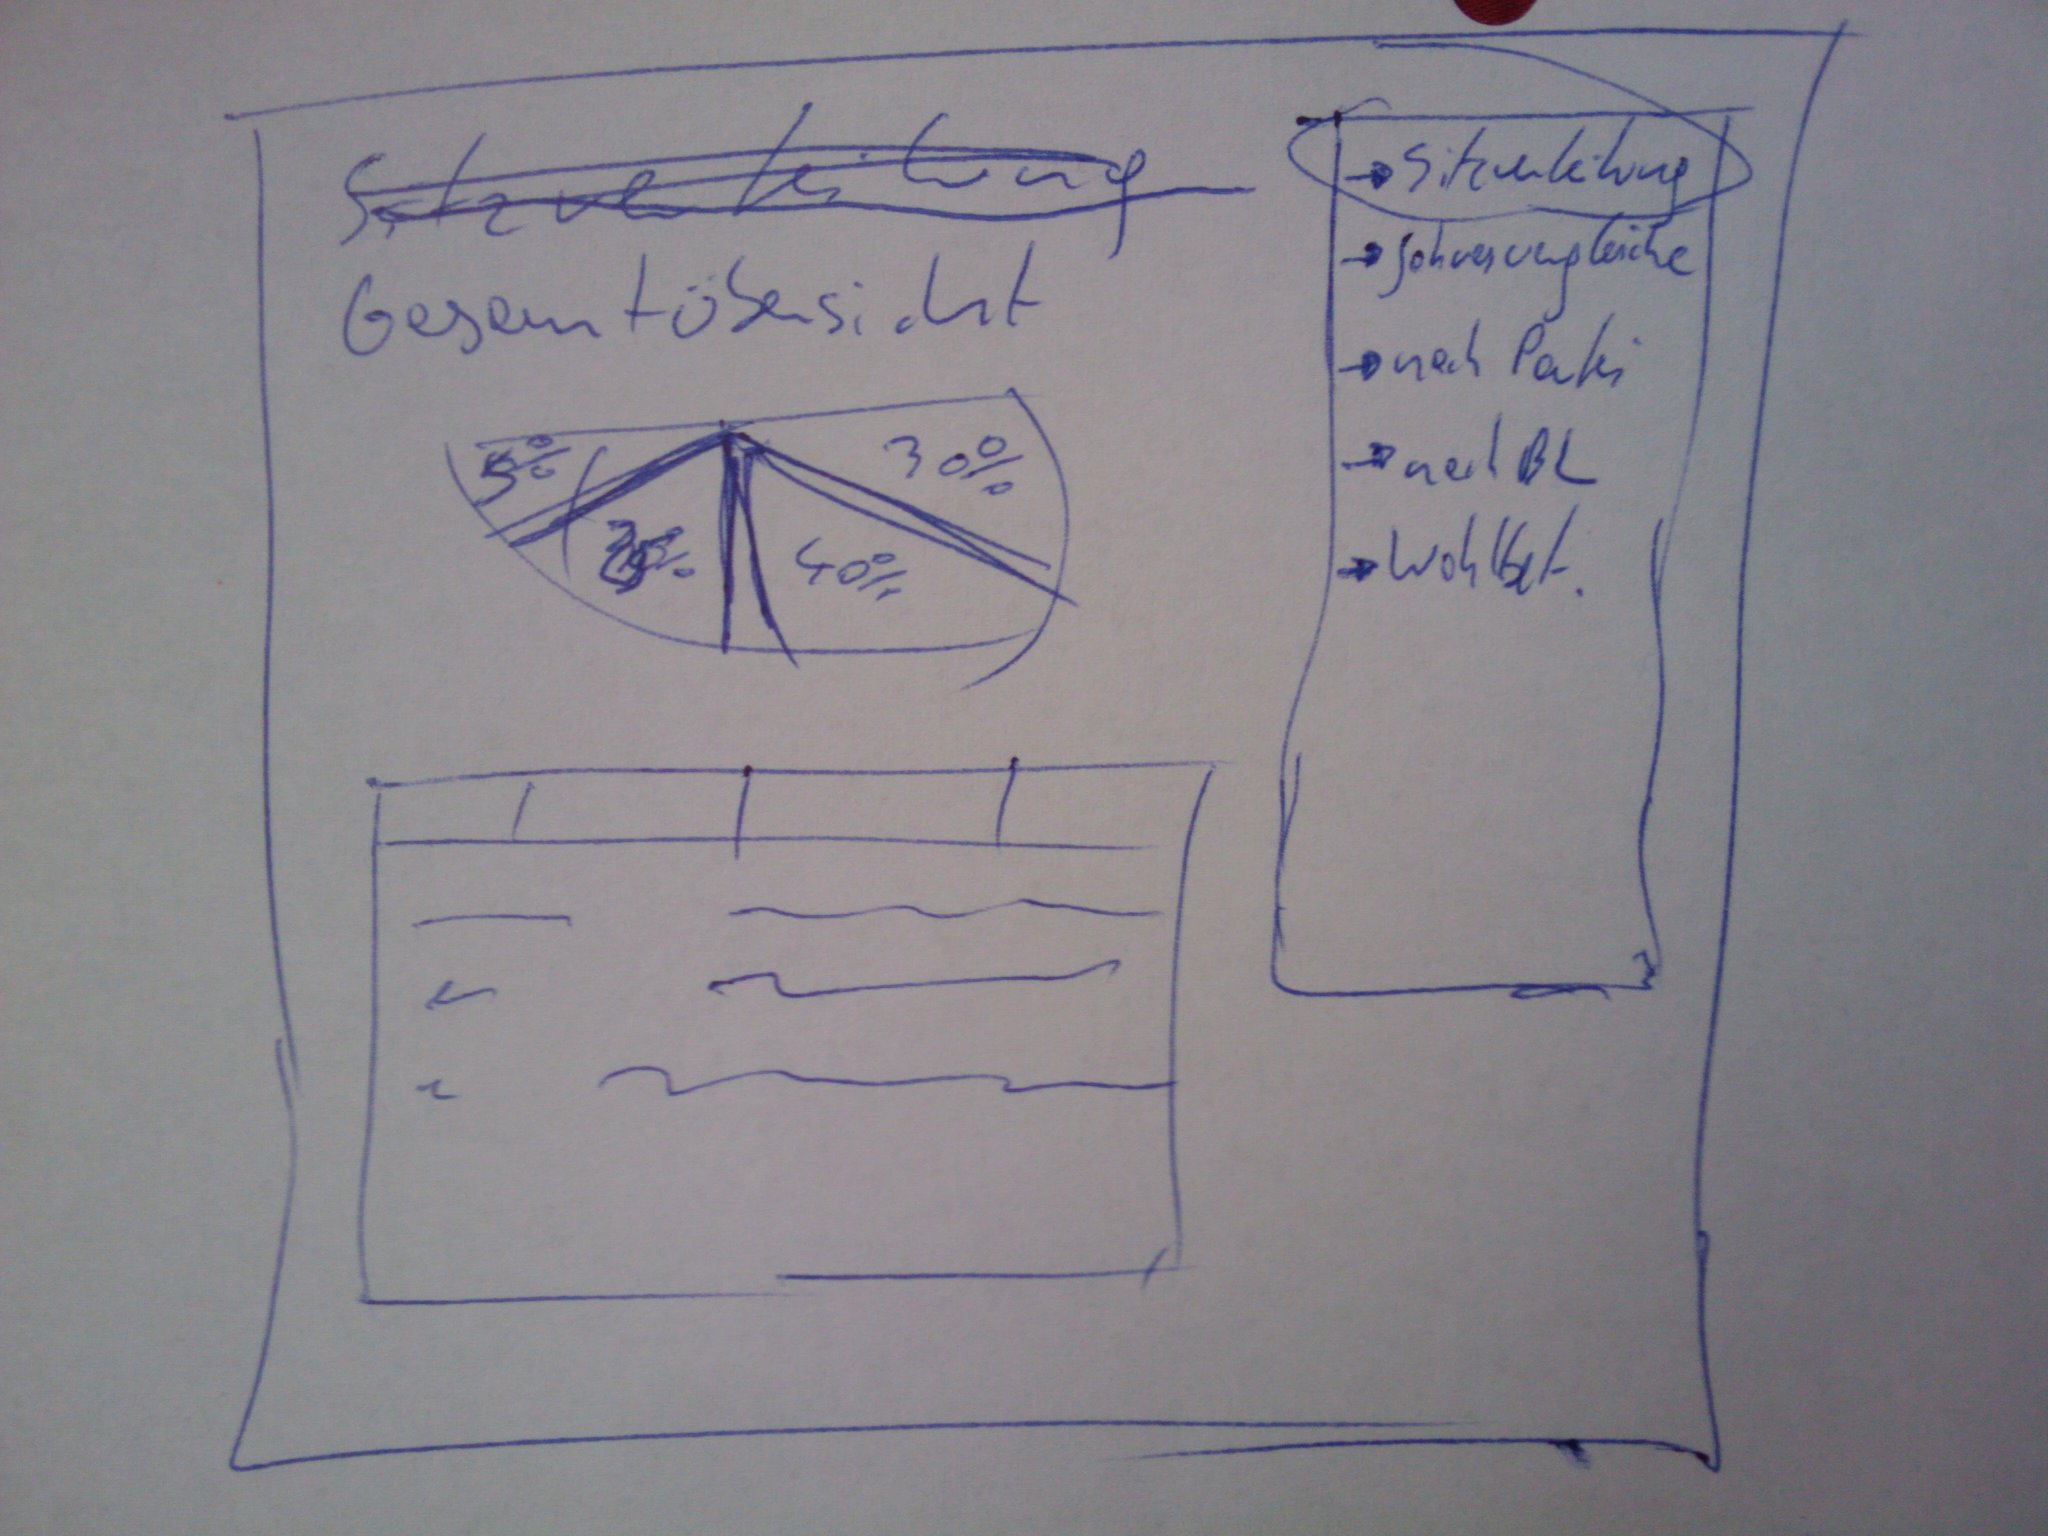 Sitzverteilung
Gesamtübersicht
5%
40%
30%
→ Sitzverteilung
→ Jahresvergleiche
→ nach Partei
→ nach BL
→ Wahlbet.